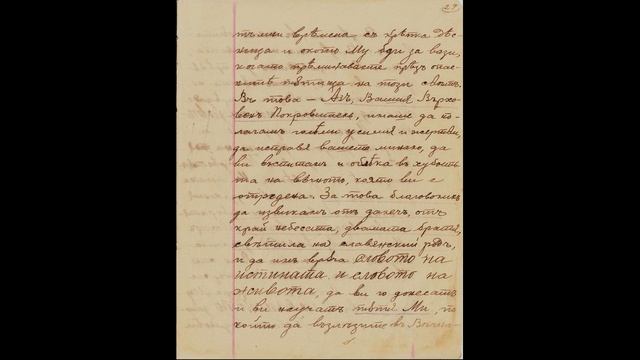 27
тъмни врѣмена съ крѣпка дѣс-
ница и окото Му бди за вази,
когато прѣминавахте прѣзъ опас-
ните пѫтища на този свѣтъ.
Въ това — Азъ, Вашия Върхо-
венъ Покровителъ, имаше да по-
лагамъ големи усилия и жертви,
да исправя вашето минало, да
ви въспитам и облѣка въ хубость-
та на вѣчното, която ви е
отредена. За това благоволихъ
да извикамъ отъ далечъ, отъ
край небесата, двамата братя,
свѣтила на славянский родъ,
и да имъ връча словото на
истината и словото на
живота, да ви го донесатъ
и ви научатъ пѫтя Ми, по
който да възлѣзите въ